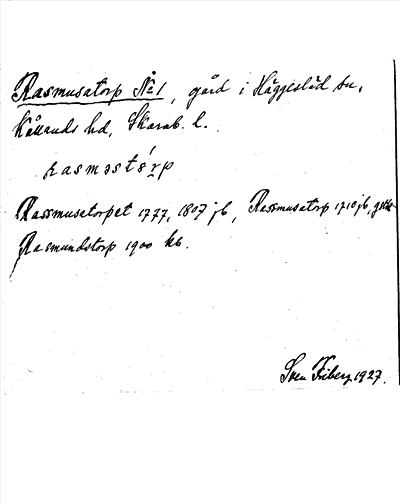 Rasmusatorp No 1, gård i Häggeslöd sn,
Kållands hd, Skarab. l.
rasməstórp
Rassmusatorpet 1777, 1807 jb, Rassmusatorp 1710 jb,
Rasmundstorp 1900 kb.
Sven Friberg 1927.